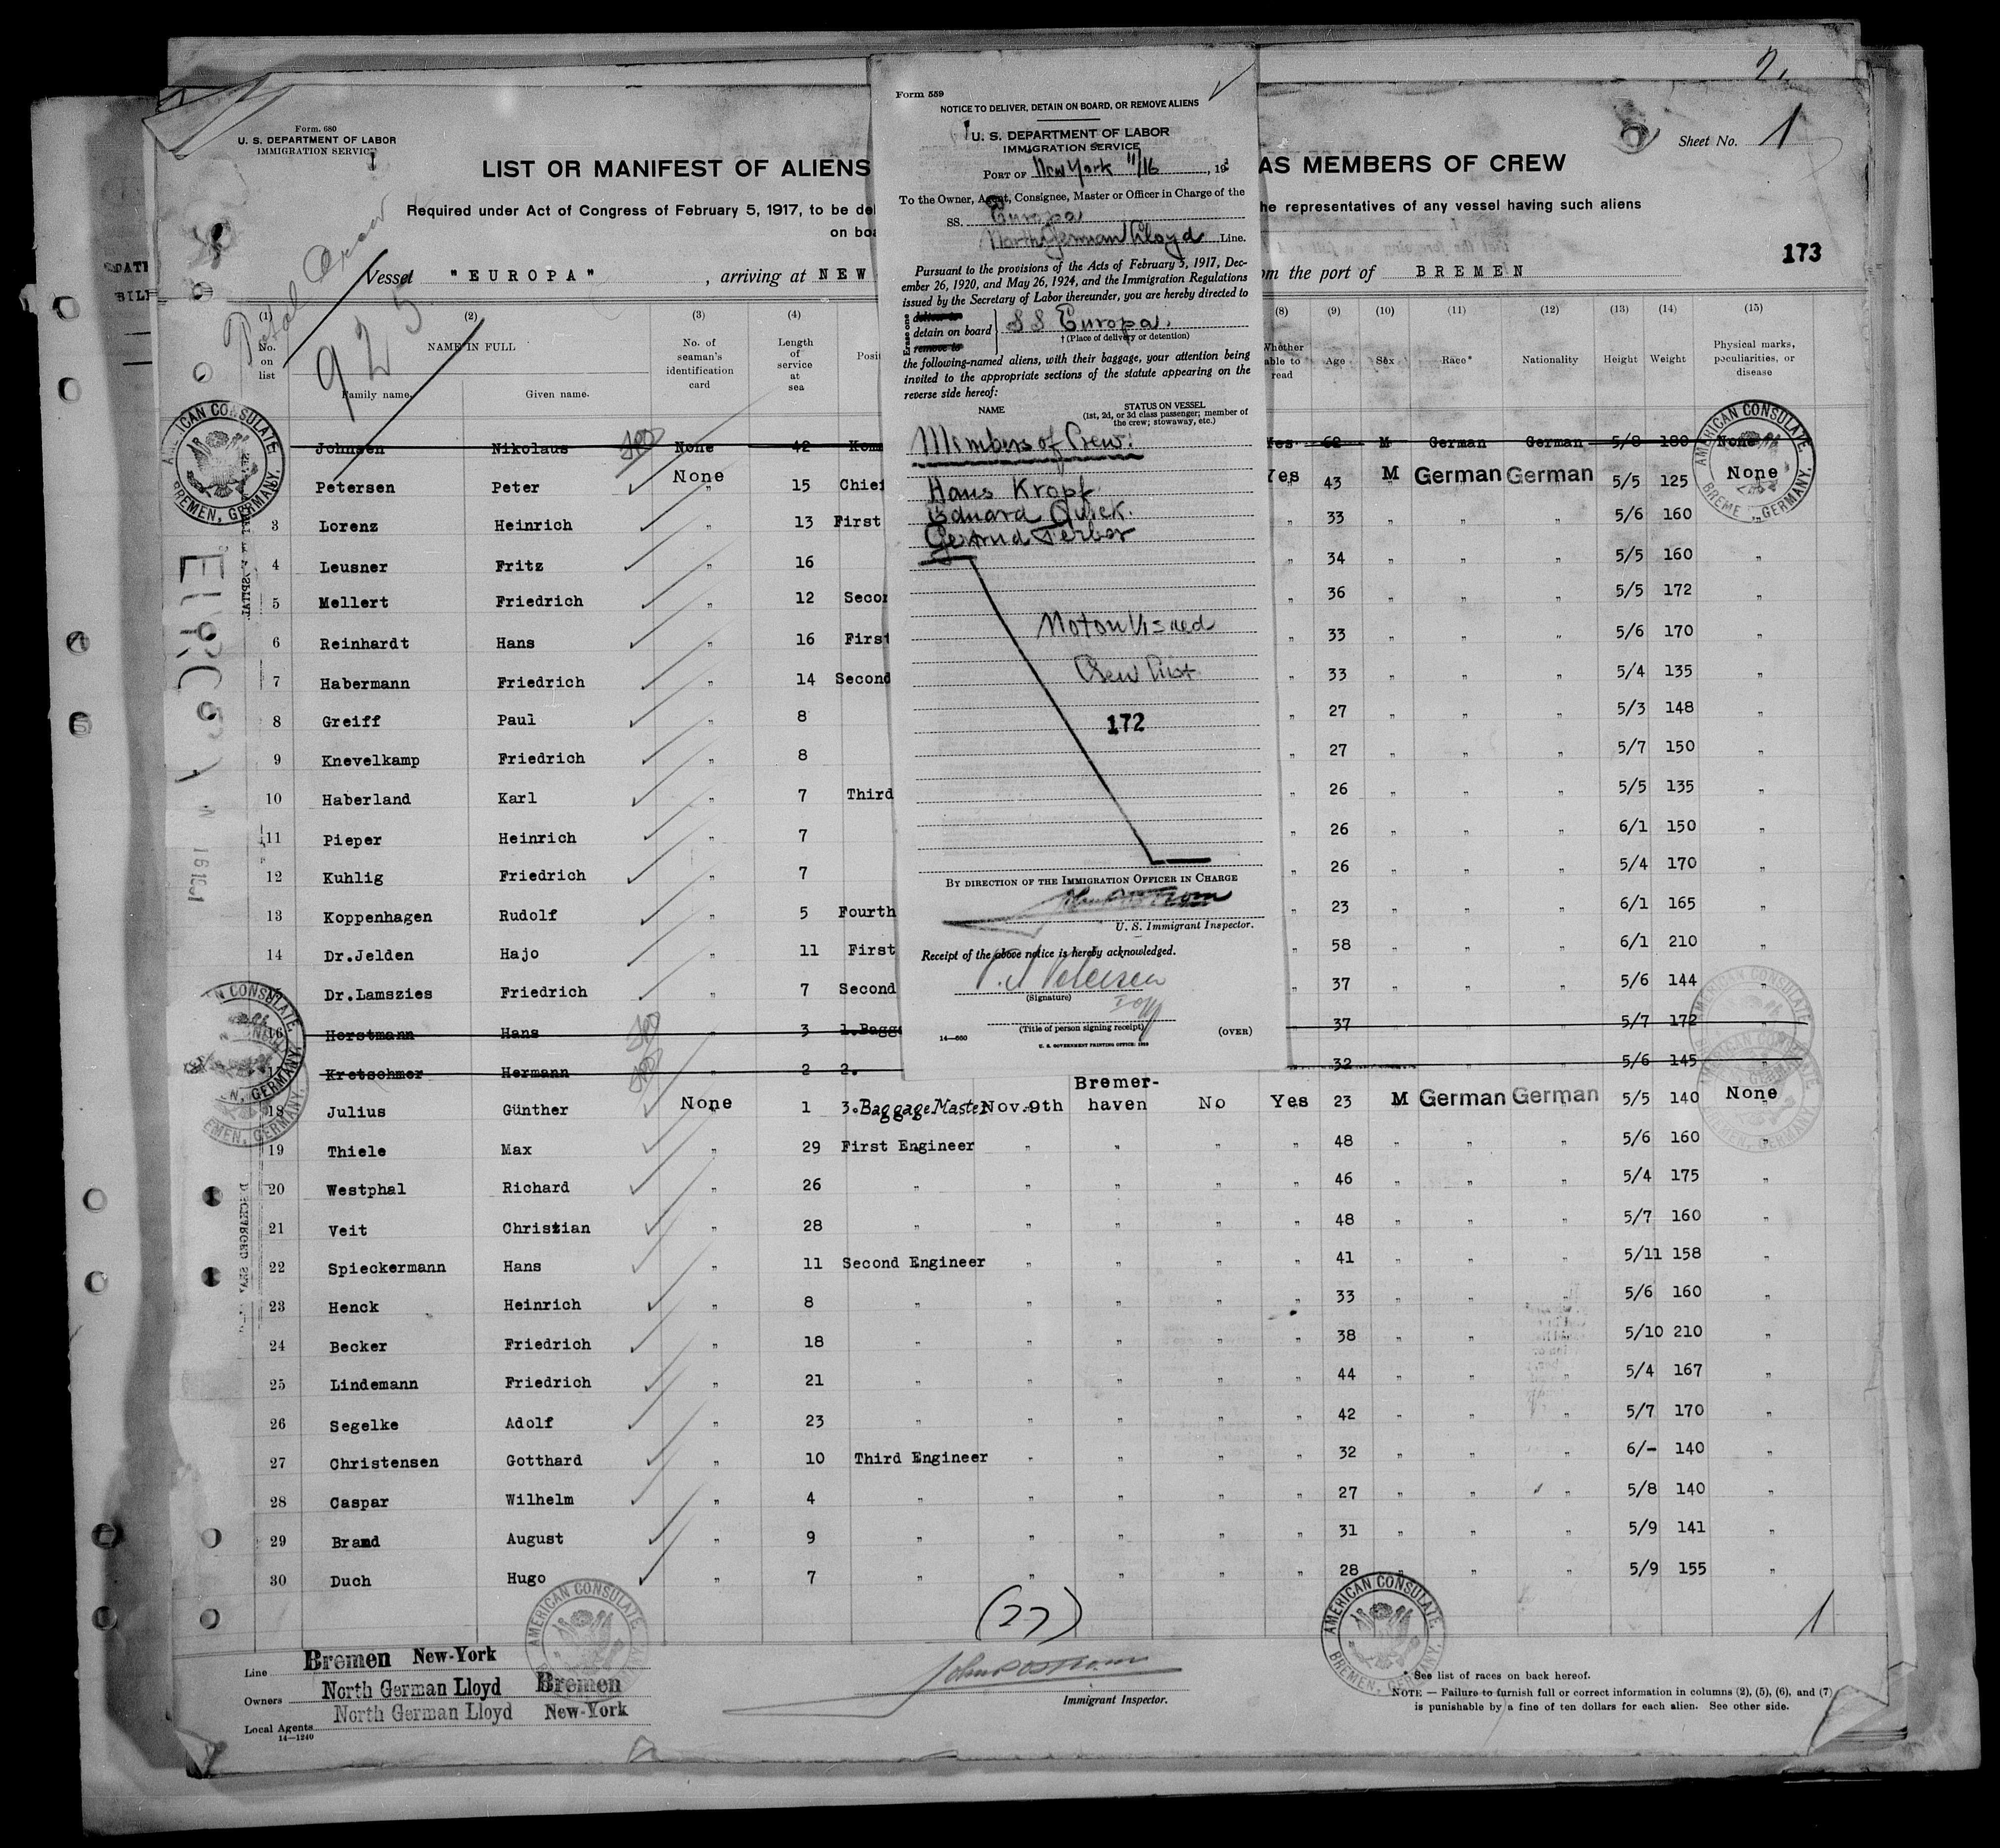 2,
Form. 680
U. S. DEPARTMENT OF LABOR
IMMIGRATION SERVICE
LIST OR MANIFEST OF ALIENS
AS MEMBERS OF CREW
Sheet No. 1
Required under Act of Congress of February 5, 1917, to be
he representatives of any vessel having such aliens
on
173
Total Crew
925
Vessel "EUROPA", arriving at NEW
the port of BREMEN
(1) (2) (3) (4) (8) (9) (10) (11) (12) (13) (14) (15)
No. on list
NAME IN FULL
Family name. Given name.
No. of seaman's identification card
Length of service at sea
Whether able to read
Age Sex Race* Nationality Height Weight
Physical marks, peculiarities, or disease
Johnsen Nikolaus None 42 Yes 62 M German German 5/8 180 None
Petersen Peter None 15 Chief Yes 43 M German German 5/5 125 None
3 Lorenz Heinrich " 13 First " 33 " " " 5/6 160 "
4 Leusner Fritz " 16 " 34 " " " 5/5 160 "
5 Mellert Friedrich " 12 " 36 " " " 5/5 172 "
6 Reinhardt Hans " 16 First " 33 " " " 5/6 170 "
7 Habermann Friedrich " 14 Second " 33 " " " 5/4 135 "
8 Greiff Paul " 8 " 27 " " " 5/3 148 "
9 Knevelkamp Friedrich " 8 " 27 " " " 5/7 150 "
10 Haberland Karl " 7 Third " 26 " " " 5/5 135 "
11 Pieper Heinrich " 7 " 26 " " " 6/1 150 "
12 Kuhlig Friedrich " 7 " 26 " " " 5/4 170 "
13 Koppenhagen Rudolf " 5 Fourth " 23 " " " 6/1 165 "
14 Dr.Jelden Hajo " 11 First " 58 " " " 6/1 210 "
Dr.Lamszies Friedrich " 7 Second " 37 " " " 5/6 144 "
16 Horstmann Hans " 3 37 5/7 172 "
Kretschmer Hermann " 2 2. 32 5/6 145
18 Julius Günther None 1 3.Baggage Master Nov.9th Bremer-haven No Yes 23 M German German 5/5 140 None
19 Thiele Max " 29 First Engineer " " " " 48 " " " 5/6 160 "
20 Westphal Richard " 26 " " " " " 46 " " " 5/4 175 "
21 Veit Christian " 28 " " " " " 48 " " " 5/7 160 "
22 Spieckermann Hans " 11 Second Engineer " " " " 41 " " " 5/11 158 "
23 Henck Heinrich " 8 " " " " " 33 " " " 5/6 160 "
24 Becker Friedrich " 18 " " " " " 38 " " " 5/10 210 "
25 Lindemann Friedrich " 21 " " " " " 44 " " " 5/4 167 "
26 Segelke Adolf " 23 " " " " " 42 " " " 5/7 170 "
27 Christensen Gotthard " 10 Third Engineer " " " " 32 " " " 6/- 140 "
28 Caspar Wilhelm " 4 " " " " " 27 " " " 5/8 140 "
29 Brand August " 9 " " " " " 31 " " " 5/9 141 "
30 Duch Hugo " 7 " " " " " 28 " " " 5/9 155 "
(27)
1
Line Bremen New-York
Owners North German Lloyd Bremen
Local Agents North German Lloyd New-York
14—1240
Immigrant Inspector.
* See list of races on back hereof.
NOTE — Failure to furnish full or correct information in columns (2), (5), (6), and (7)
is punishable by a fine of ten dollars for each alien. See other side.
AMERICAN CONSULATE
BREMEN, GERMANY.
Form 559
NOTICE TO DELIVER, DETAIN ON BOARD, OR REMOVE ALIENS
U. S. DEPARTMENT OF LABOR
IMMIGRATION SERVICE
PORT OF New York 11/16, 193
To the Owner, Agent, Consignee, Master or Officer in Charge of the
SS. Europa
North German Lloyd Line.
Pursuant to the provisions of the Acts of February 5, 1917, Dec-
ember 26, 1920, and May 26, 1924, and the Immigration Regulations
issued by the Secretary of Labor thereunder, you are hereby directed to
Erase one
deliver to
detain on board
remove to
SS Europa.
† (Place of delivery or detention)
the following-named aliens, with their baggage, your attention being
invited to the appropriate sections of the statute appearing on the
reverse side hereof:
NAME
STATUS ON VESSEL
(1st, 2d, or 3d class passenger; member of
the crew; stowaway, etc.)
Members of Crew:
Hans Kropf
Eduard Quick.
Gertrud Ferber
Not on Visaed
Crew List
172
BY DIRECTION OF THE IMMIGRATION OFFICER IN CHARGE
U. S. Immigrant Inspector.
Receipt of the above notice is hereby acknowledged.
(Signature)
(Title of person signing receipt)
(OVER)
14—680
U. S. GOVERNMENT PRINTING OFFICE: 1929